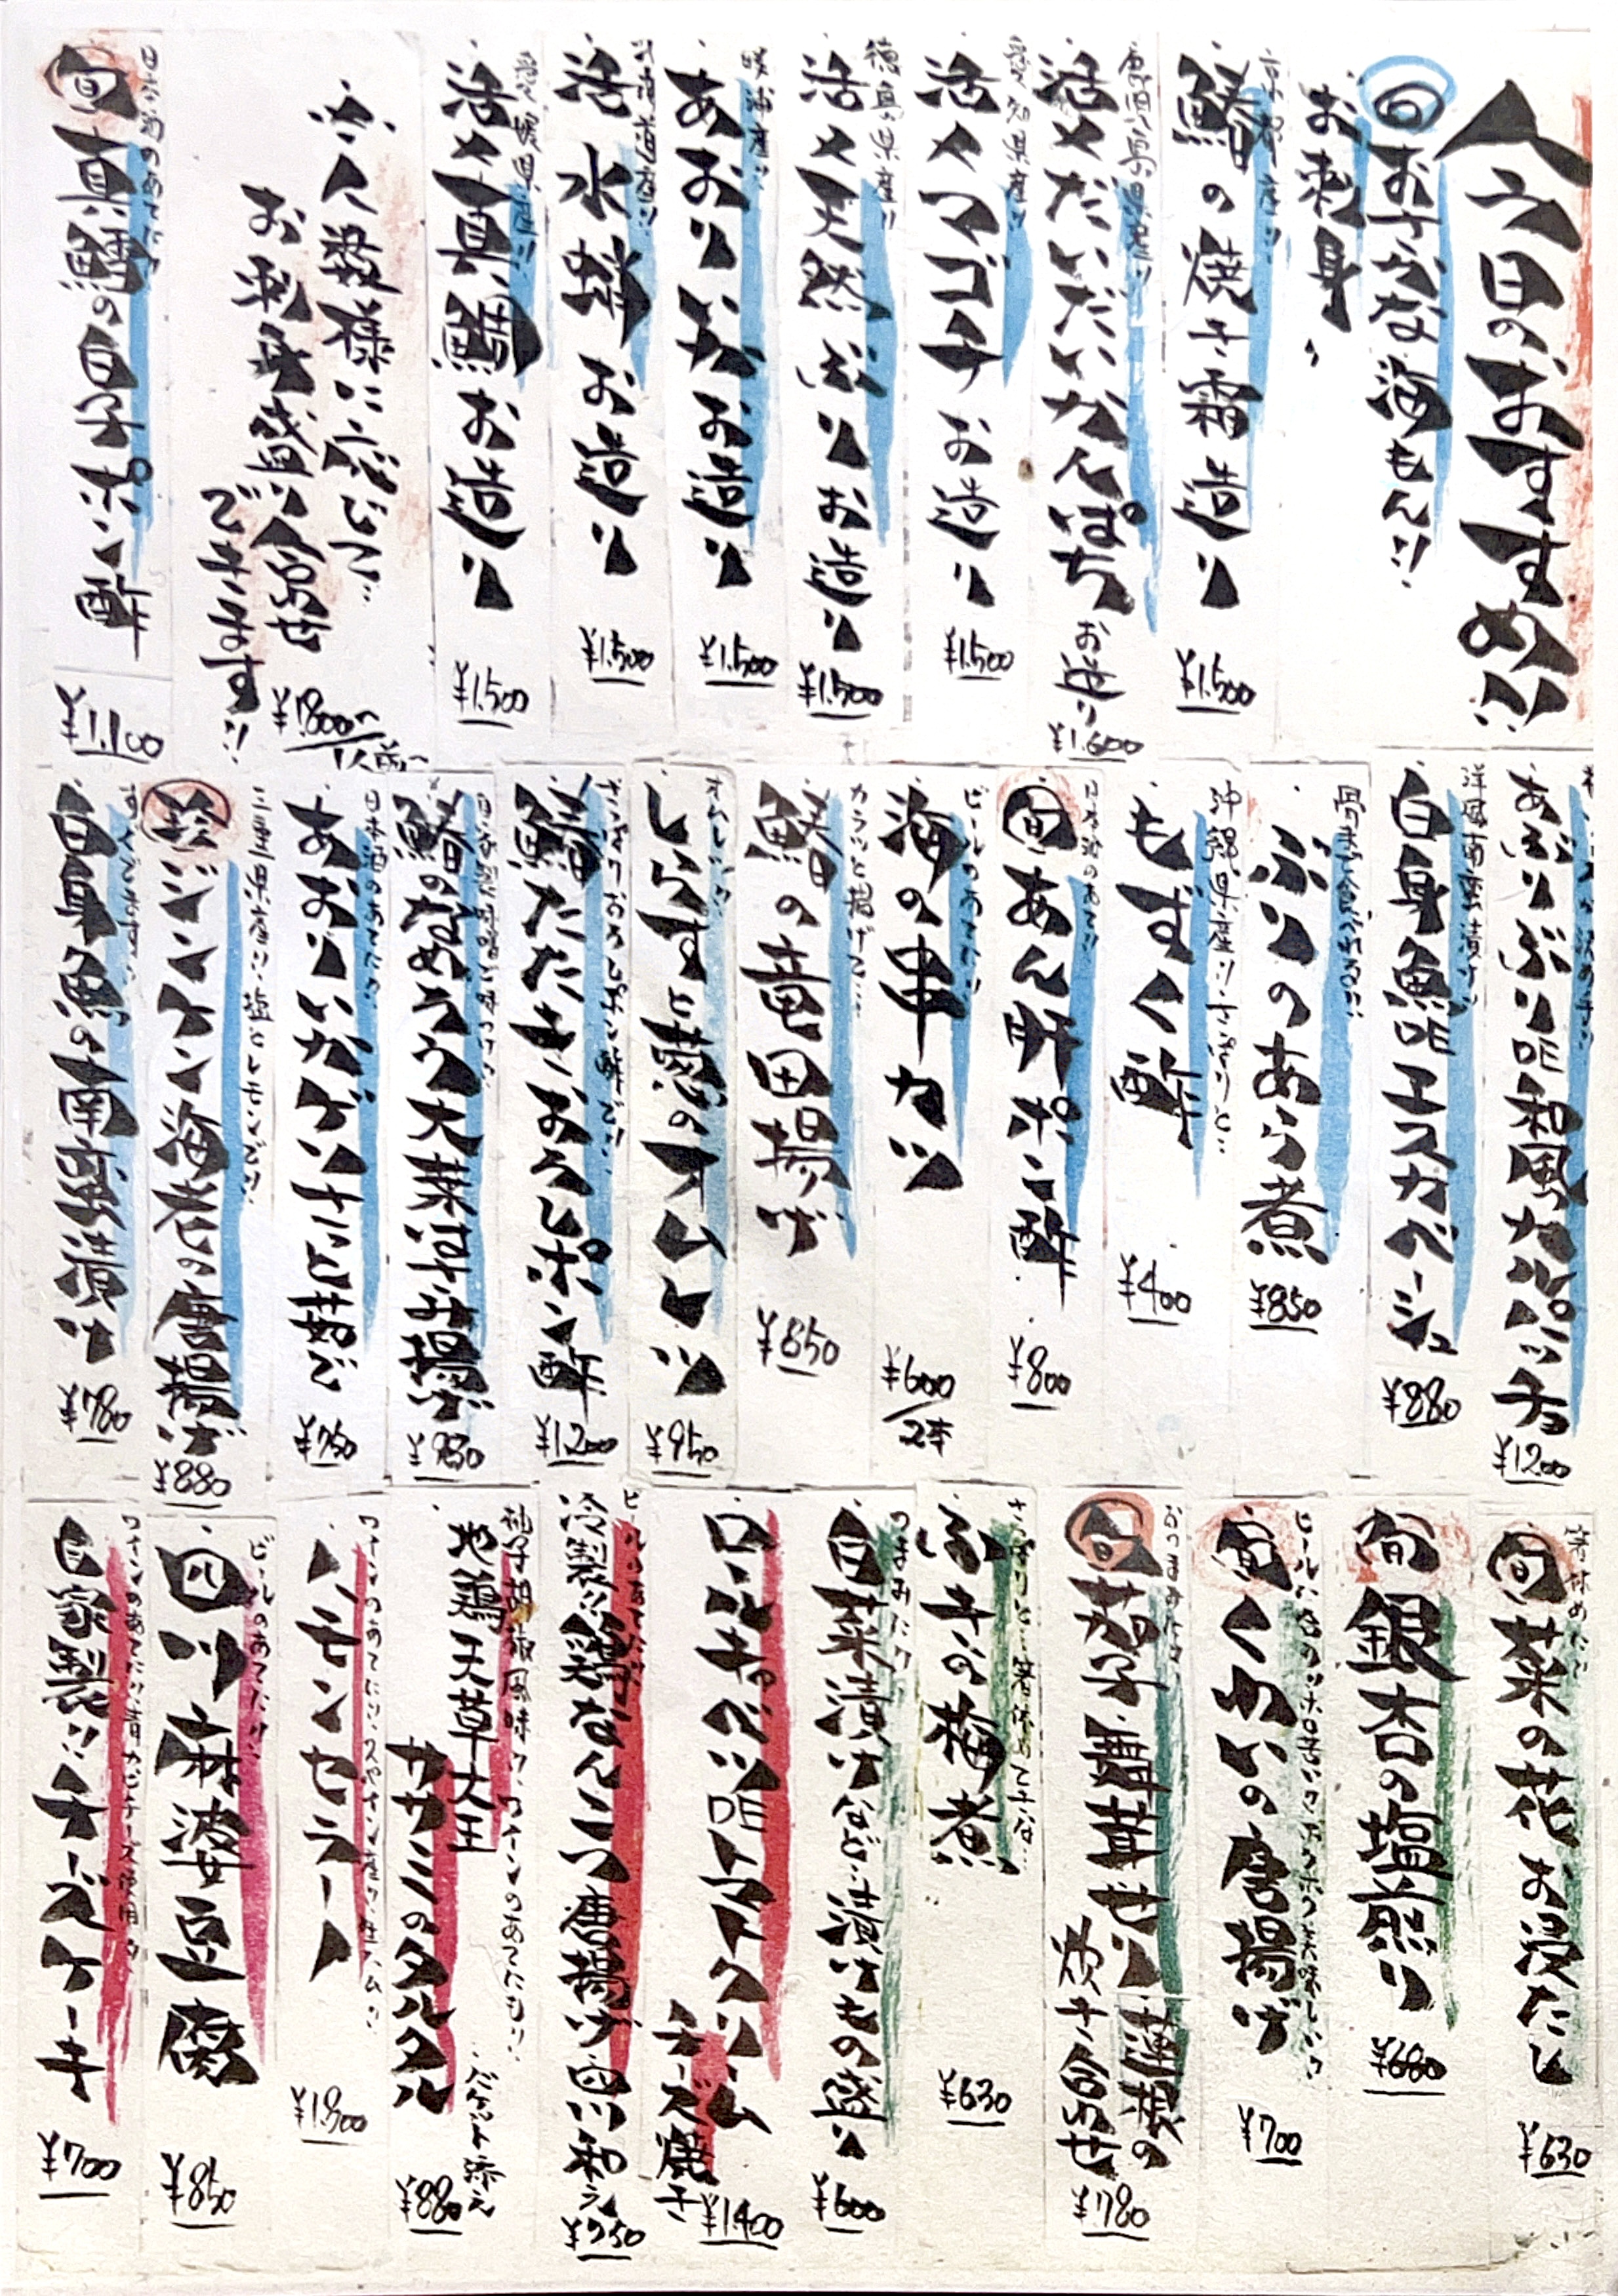 今日のおすすめ!!
旬 おさかな 海もん!!
お刺身
京都産!!
鰆の焼き霜造り
¥1.500
鹿児島県産!!
活〆だいだいかんぱち お造り
¥1.600
愛知県産!!
活〆マゴチお造り
¥1.500
徳島県産!!
活〆天然ぶりお造り
¥1.500
あおりいかお造り
¥1.500
北海道産!!
活水蛸お造り
¥1.500
愛媛県産!!
活〆真鯛お造り
¥1.500
人数様に応じて…
お刺身盛り合わせ
できます!!
¥1.800〜/1人前〜
日本酒のあてに!!
旬 真鱈の白子ポン酢
¥1.100
あぶりぶり 和風カルパッチョ
¥1200
洋風南蛮漬け!!
白身魚 エスカベーシュ
¥880
骨まで食べれる!!
ぶりのあら煮
¥850
沖縄県産!!さっぱりと…
もずく酢
¥400
日本酒のあて!!
旬 あん肝ポン酢
¥800
ビールのあてに!!
海の串カツ
¥600/2本
カラッと揚げて…
鰆の竜田揚げ
¥850
しらすと葱のオムレツ
¥950
さっぱりおろしポン酢で!!
鰆たたき おろしポン酢
¥1200
鰆のなめろう大葉はさみ揚げ
日本酒のあてに!!
あおりいかゲソさっと茹で
三重県産!!塩とレモンで!!
ジンケン海老の唐揚げ
¥880
白身魚の南蛮漬け
¥780
箸休めに!!
旬 菜の花お浸たし
¥630
旬 銀杏の塩煎り
¥680
旬 くわいの唐揚げ
¥700
おつまみに!!
旬 茄子 舞茸 せり 蓮根の
炊き合わせ
¥780
ふきの梅煮
¥630
おつまみに!!
白菜漬けなど…漬けもの盛り
¥600
ロールキャベツ トマトクリーム
チーズ焼き
¥1400
ビールのあてに!!
冷製!!鶏なんこつ唐揚げ 四川和え
柚子胡椒風味!!ワインのあてにも!!
地鶏 天草大王
ササミのタルタル
バケット添え
¥880
ワインのあてに!!スペイン産!!生ハム!!
ハモンセラーノ
ビールのあてに!!
四川麻婆豆腐
¥850
ワインのあてに!!青カビチーズ使用!!
自家製!!チーズケーキ
¥700